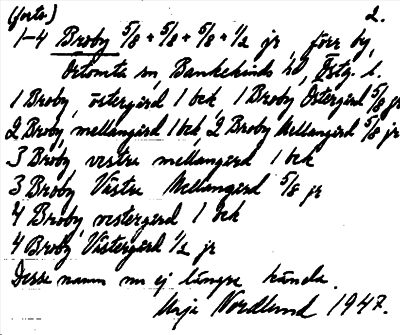 (forts.) 2.
1-4 Broby 5/8 + 5/8 + 5/8 + 1/2 jr, förr by,
Örtomta sn, Bankekinds hd, Östg. l.
1 Broby, östergärd 1 bek 1 Broby Östergård 5/8 jr
2 Broby, mellangärd 1 bek, 2 Broby Mellangård 5/8 jr
3 Broby vestre mellangärd 1 bek
3 Broby Västre Mellangård 5/8 jr
4 Broby, vestergärd 1 bek
4 Broby Västergård 1/2 jr
Dessa namn nu ej längre kända.
Nordlund 1947.